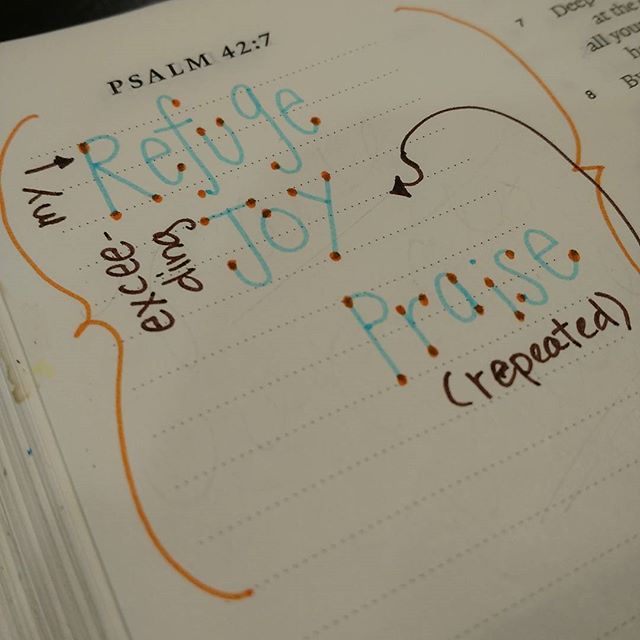 PSALM 42:7
my
Refuge
excee-
ding
Joy
Praise
(repeated)
7 Deep
at the
all you
8 B